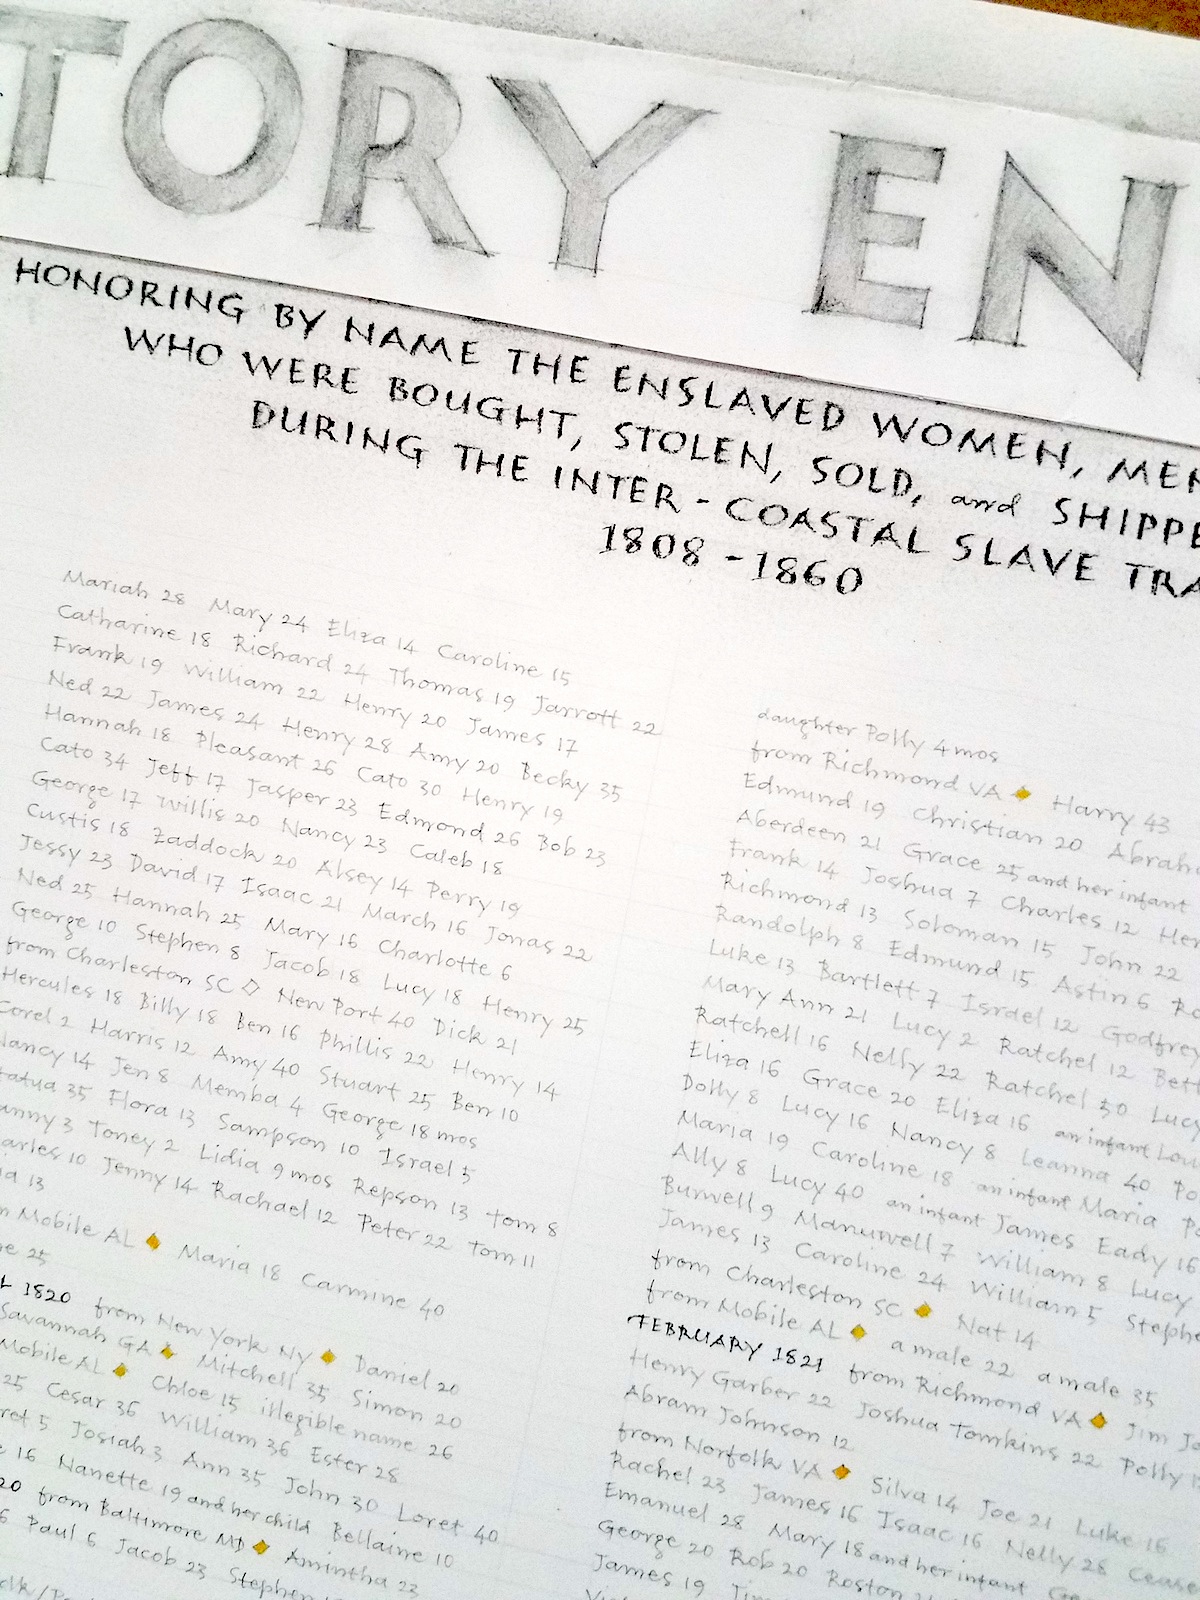 TORY EN
HONORING BY NAME THE ENSLAVED WOMEN, MEN
WHO WERE BOUGHT, STOLEN, SOLD, and SHIPPE
DURING THE INTER-COASTAL SLAVE TRA
1808-1860
Mariah 28 Mary 24 Eliza 14 Caroline 15
Catharine 18 Richard 24 Thomas 19 Jarrott 22
Frank 19 William 22 Henry 20 James 17
Ned 22 James 24 Henry 28 Amy 20 Becky 35
Hannah 18 Pleasant 26 Cato 30 Henry 19
Cato 34 Jeff 17 Jasper 23 Edmond 26 Bob 23
George 17 Willis 20 Nancy 23 Caleb 18
Custis 18 Zaddock 20 Alsey 14 Perry 19
Jessy 23 David 17 Isaac 21 March 16 Jonas 22
Ned 25 Hannah 25 Mary 16 Charlotte 6
George 10 Stephen 8 Jacob 18 Lucy 18 Henry 25
from Charleston SC ◇ New Port 40 Dick 21
Hercules 18 Billy 18 Ben 16 Phillis 22 Henry 14
Corel 2 Harris 12 Amy 40 Stuart 25 Ben 10
Nancy 14 Jen 8 Memba 4 George 18 mos
tatua 35 Flora 13 Sampson 10 Israel 5
anny 3 Toney 2 Lidia 9 mos Repson 13 Tom 8
arles 10 Jenny 14 Rachael 12 Peter 22 Tom 11
ia 13
m Mobile AL ◆ Maria 18 Carmine 40
e 25
L 1820 from New York NY ◆ Daniel 20
Savannah GA ◆ Mitchell 35 Simon 20
Mobile AL ◆ Chloe 15 illegible name 26
25 Cesar 36 William 36 Ester 28
ret 5 Josiah 3 Ann 35 John 30 Loret 40
e 16 Nanette 19 and her child Bellaine 10
20 from Baltimore MD ◆ Amintha 23
6 Paul 6 Jacob 23 Stephen
daughter Polly 4 mos
from Richmond VA ◆ Harry 43
Edmund 19 Christian 20 Abrah
Aberdeen 21 Grace 25 and her infant
Frank 14 Joshua 7 Charles 12 Hen
Richmond 13 Soloman 15 John 22
Randolph 8 Edmund 15 Astin 6 Ro
Luke 13 Bartlett 7 Israel 12 Godfrey
Mary Ann 21 Lucy 2 Ratchel 12 Bett
Ratchell 16 Nelly 22 Ratchel 30 Lucy
Eliza 16 Grace 20 Eliza 16 an infant Lou
Dolly 8 Lucy 16 Nancy 8 Leanna 40 Po
Maria 19 Caroline 18 an infant Maria
Ally 8 Lucy 40 an infant James Eady 16
Burwell 9 Manuwell 7 William 8 Lucy
James 13 Caroline 24 William 5 Stephe
from Charleston SC ◆ Nat 14
from Mobile AL ◆ a male 22 a male 35
FEBRUARY 1821 from Richmond VA ◆ Jim Jo
Henry Garber 22 Joshua Tomkins 22 Polly
Abram Johnson 12
from Norfolk VA ◆ Silva 14 Joe 21 Luke 16
Rachel 23 James 16 Isaac 16 Nelly 28 Cease
Emanuel 28 Mary 18 and her infant Ge
George 20 Rob 20 Roston
James 19 Jim